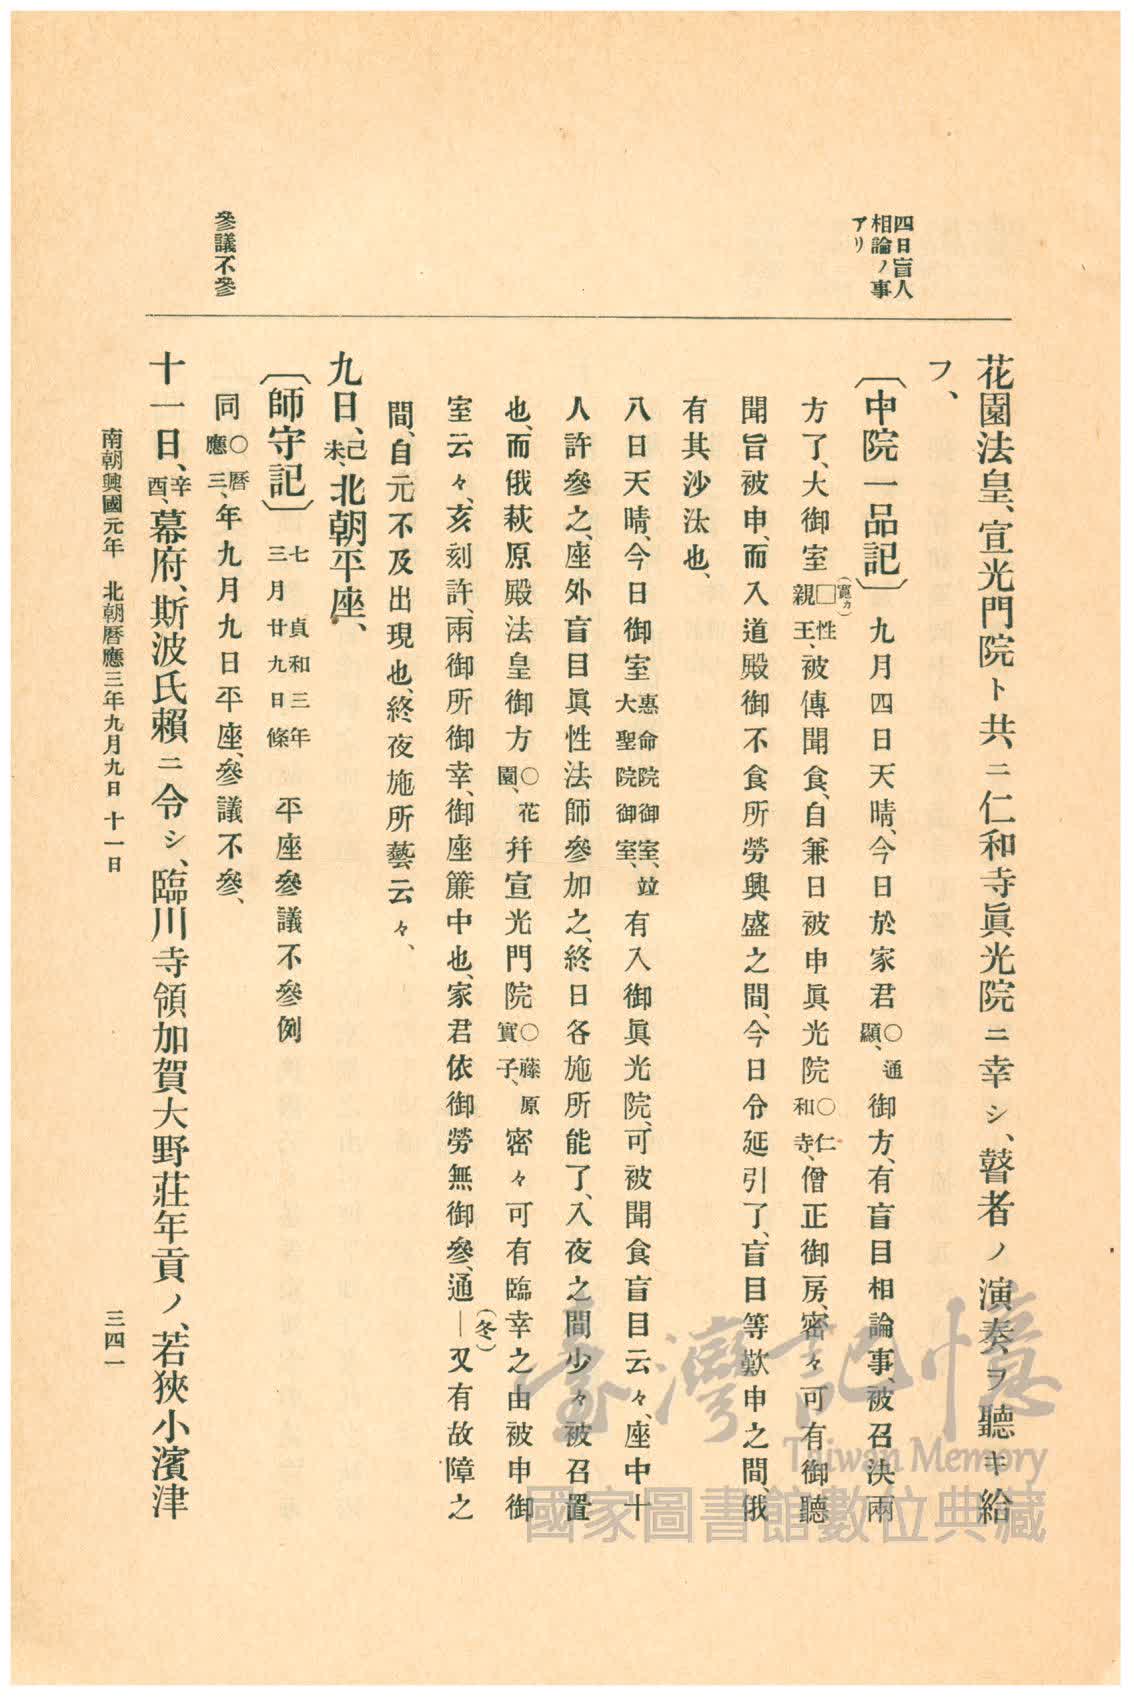 四日盲人
相論ノ事
アリ
參議不參
花園法皇、宣光門院ト共ニ仁和寺眞光院ニ幸シ、瞽者ノ演奏ヲ聽キ給
フ、
〔中院一品記〕九月四日天晴、今日於家君〇通顯、御方、有盲目相論事、被召決兩
方了、大御室□(寬カ)性親王、被傳聞食、自兼日被申眞光院〇仁和寺、僧正御房、密々可有御聽
聞旨被申、而入道殿御不食所勞興盛之間、今日令延引了、盲目等歎申之間、俄
有其沙汰也、
八日天晴、今日御室惠命院御室、竝大聖院御室、有入御眞光院、可被聞食盲目云々、座中十
人許參之、座外盲目眞性法師參加之、終日各施所能了、入夜之間少々被召置
也、而俄萩原殿法皇御方〇花園、幷宣光門院〇藤原實子、密々可有臨幸之由被申御
室云々、亥刻許、兩御所御幸、御座簾中也、家君依御勞無御參、通―(冬)又有故障之
間、自元不及出現也、終夜施所藝云々、
九日、己未、北朝平座、
〔師守記〕七 貞和三年三月廿九日條 平座參議不參例
同〇曆應三、年九月九日平座、參議不參、
十一日、辛酉、幕府、斯波氏賴ニ令シ、臨川寺領加賀大野莊年貢ノ、若狹小濱津
南朝興國元年 北朝曆應三年九月九日 十一日
三四一
臺灣記憶
Taiwan Memory
國家圖書館數位典藏